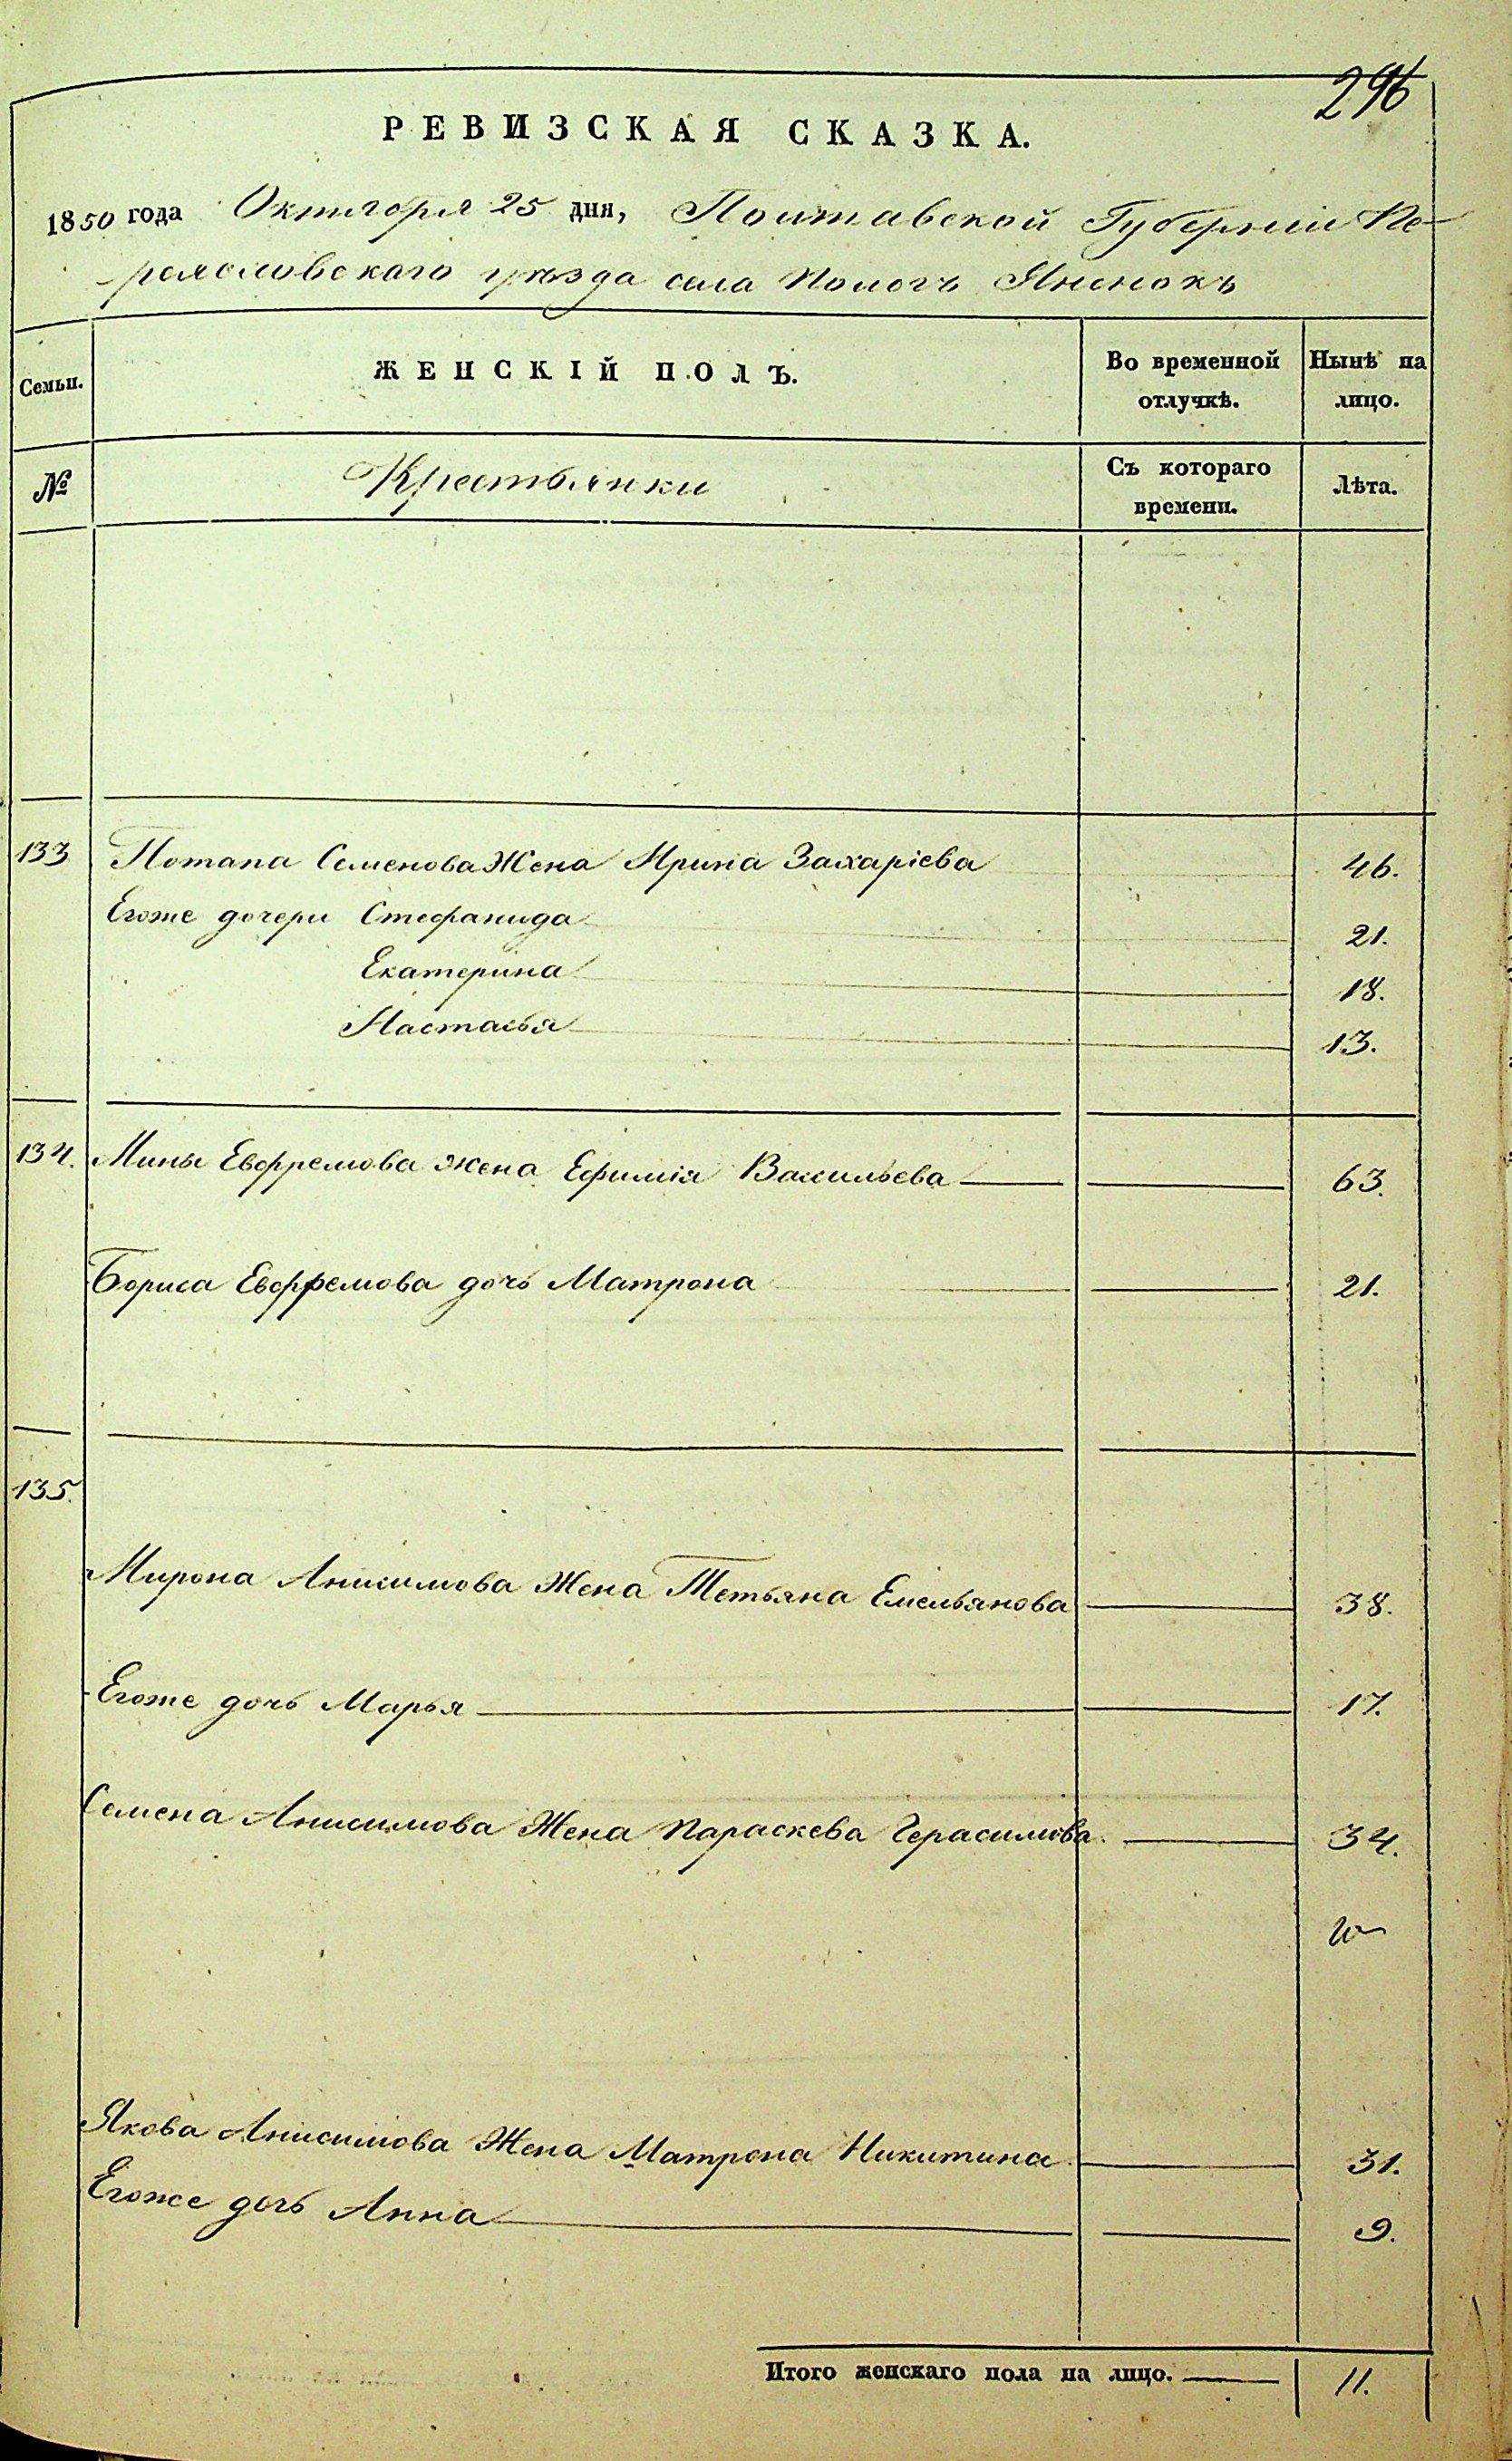 296
РЕВИЗСКАЯ СКАЗКА.
1850 года Октября 25 дня, Полтавской Губерніи Пе-
реяславскаго уѣзда села Пологъ Яненокъ
Семьи. ЖЕНСКІЙ ПОЛЪ. Во временной отлучкѣ. Нынѣ на лицо.
№ Крестьянки Съ котораго времени. Лѣта.
133 Потапа Семенова Жена Ирина Захаріева 46.
Егоже дочери Стефанида 21.
Екатерина 18.
Настасья 13.
134. Мины Евфремова жена Ефимія Васильева 63.
Бориса Евфремова дочь Матрона 21.
135.
Мирона Анисимова Жена Тетьяна Емельянова 38.
Егоже дочь Марья 17.
Семена Анисимова Жена Параскева Герасимова. 34.
Якова Анисимова Жена Матрона Никитина 31.
Егоже дочь Анна 9.
Итого женскаго пола на лицо. 11.